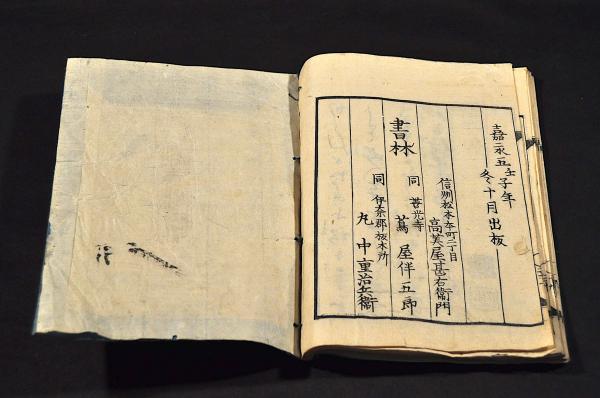 嘉永五壬子年
冬十月出板
書林
信州松本本町二丁目
高美屋甚右衛門
同 善光寺
蔦屋伴五郎
同 伊奈郡板木所
丸中重治兵衞